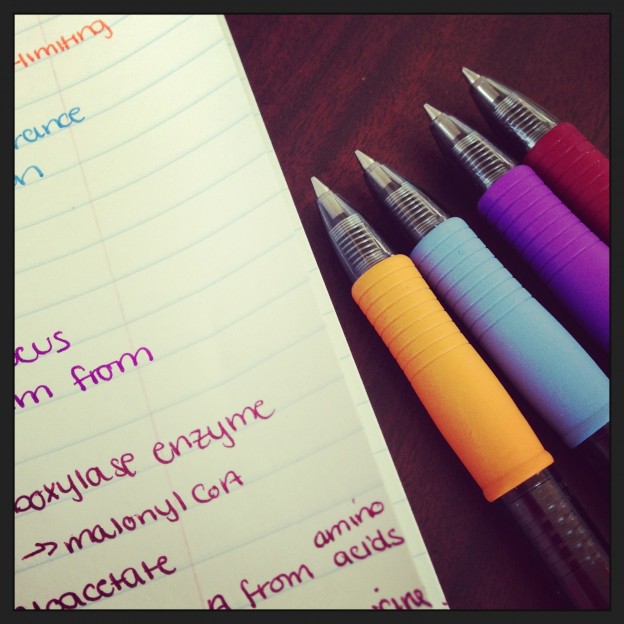 -limiting
rance
n
cus
m from
boxylase enzyme
→ malonyl CoA
loacetate
amino
A from acids